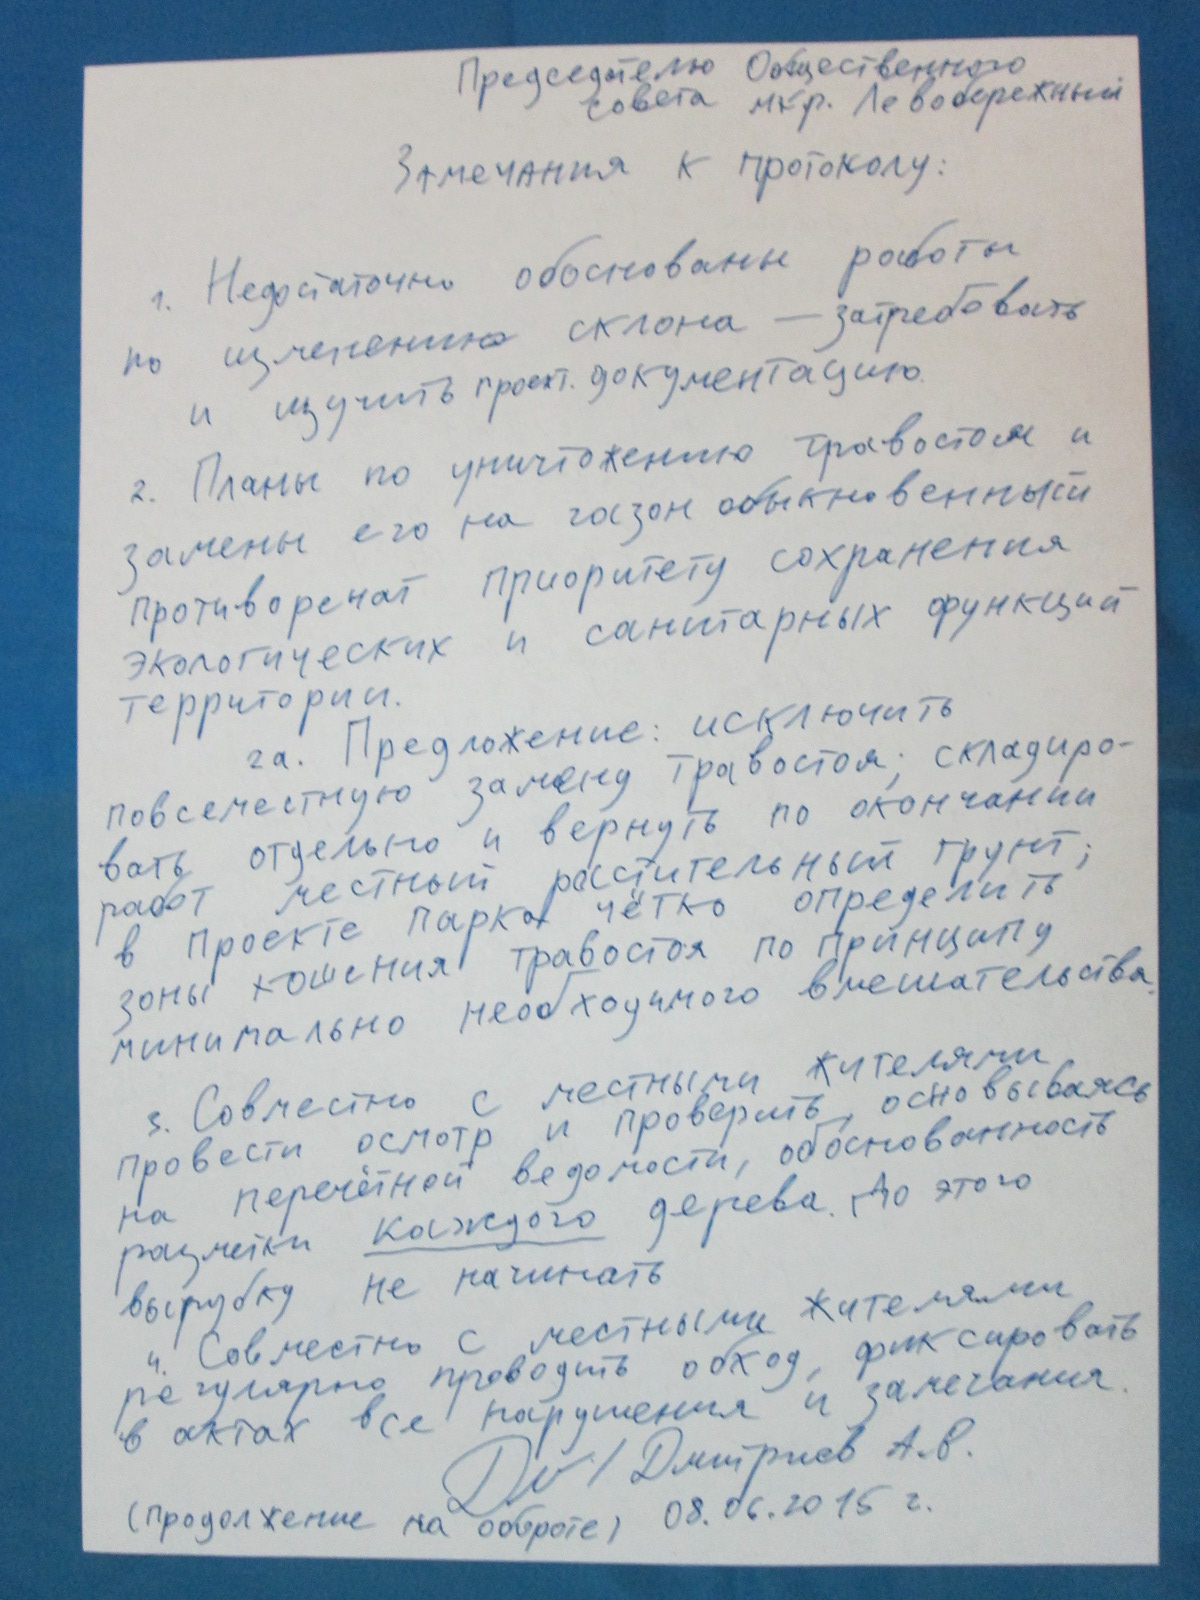 Председателю Общественного
совета мкр. Левобережный
Замечания к протоколу:
1. Недостаточно обоснованы работы
по изменению склона — затребовать
и изучить проект. документацию.
2. Планы по уничтожению травостоя и
замены его на газон обыкновенный
противоречат приоритету сохранения
экологических и санитарных функций
территории.
2а. Предложение: исключить
повсеместную замену травостоя; складиро-
вать отдельно и вернуть по окончании
работ местный растительный грунт;
в проекте парка чётко определить
зоны кошения травостоя по принципу
минимально необходимого вмешательства.
3. Совместно с местными жителями
провести осмотр и проверить, основываясь
на перечётной ведомости, обоснованность
разметки каждого дерева. До этого
вырубку не начинать
4. Совместно с местными жителями
регулярно проводить обход, фиксировать
в актах все нарушения и замечания.
/ Дмитриев А.В.
(продолжение на обороте) 08.06.2015 г.